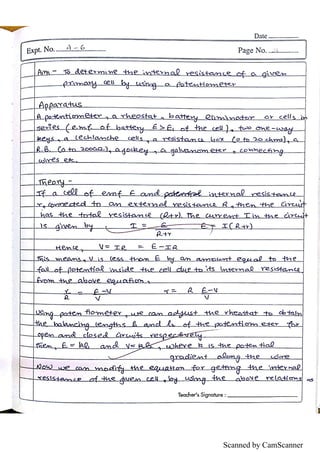 Date
Expt. No. A-6
Page No.
Aim - To determine the internal resistance of a given
primary cell by using a potentiometer
Apparatus
A potentiometer, a rheostat, battery eliminator or cells in
series (e.m.f. of battery E > E, of the cell), two one-way
keys, a Lechlanche cells, a resistance box (0 to 20 ohms), a
R.B. (0 to 2000Ω), a jockey, a galvanometer, connecting
wires etc.
Theory -
If a cell of emf E and potential internal resistance
r, connected to an external resistance R, then the circuit
has the total resistance (R+r). The current I in the circuit
is given by I = E/R+r E = I(R+r)
Hence, V = IR = E-IR
This means, V is less than E by an amount equal to the
fall of potential inside the cell due to its internal resistance
From the above equation,
r/R = E-V/V r = R E-V/V
Using potentiometer, we can adjust the rheostat to obtain
the balancing lengths l₁ and l₂ of the potentiometer for
open and closed circuits respectively
Then, E = kl₁ and V = kl₂, where k is the potential
gradient along the wire
Now we can modify the equation for getting the internal
resistance of the given cell, by using the above relations as
Teacher's Signature :
Scanned by CamScanner